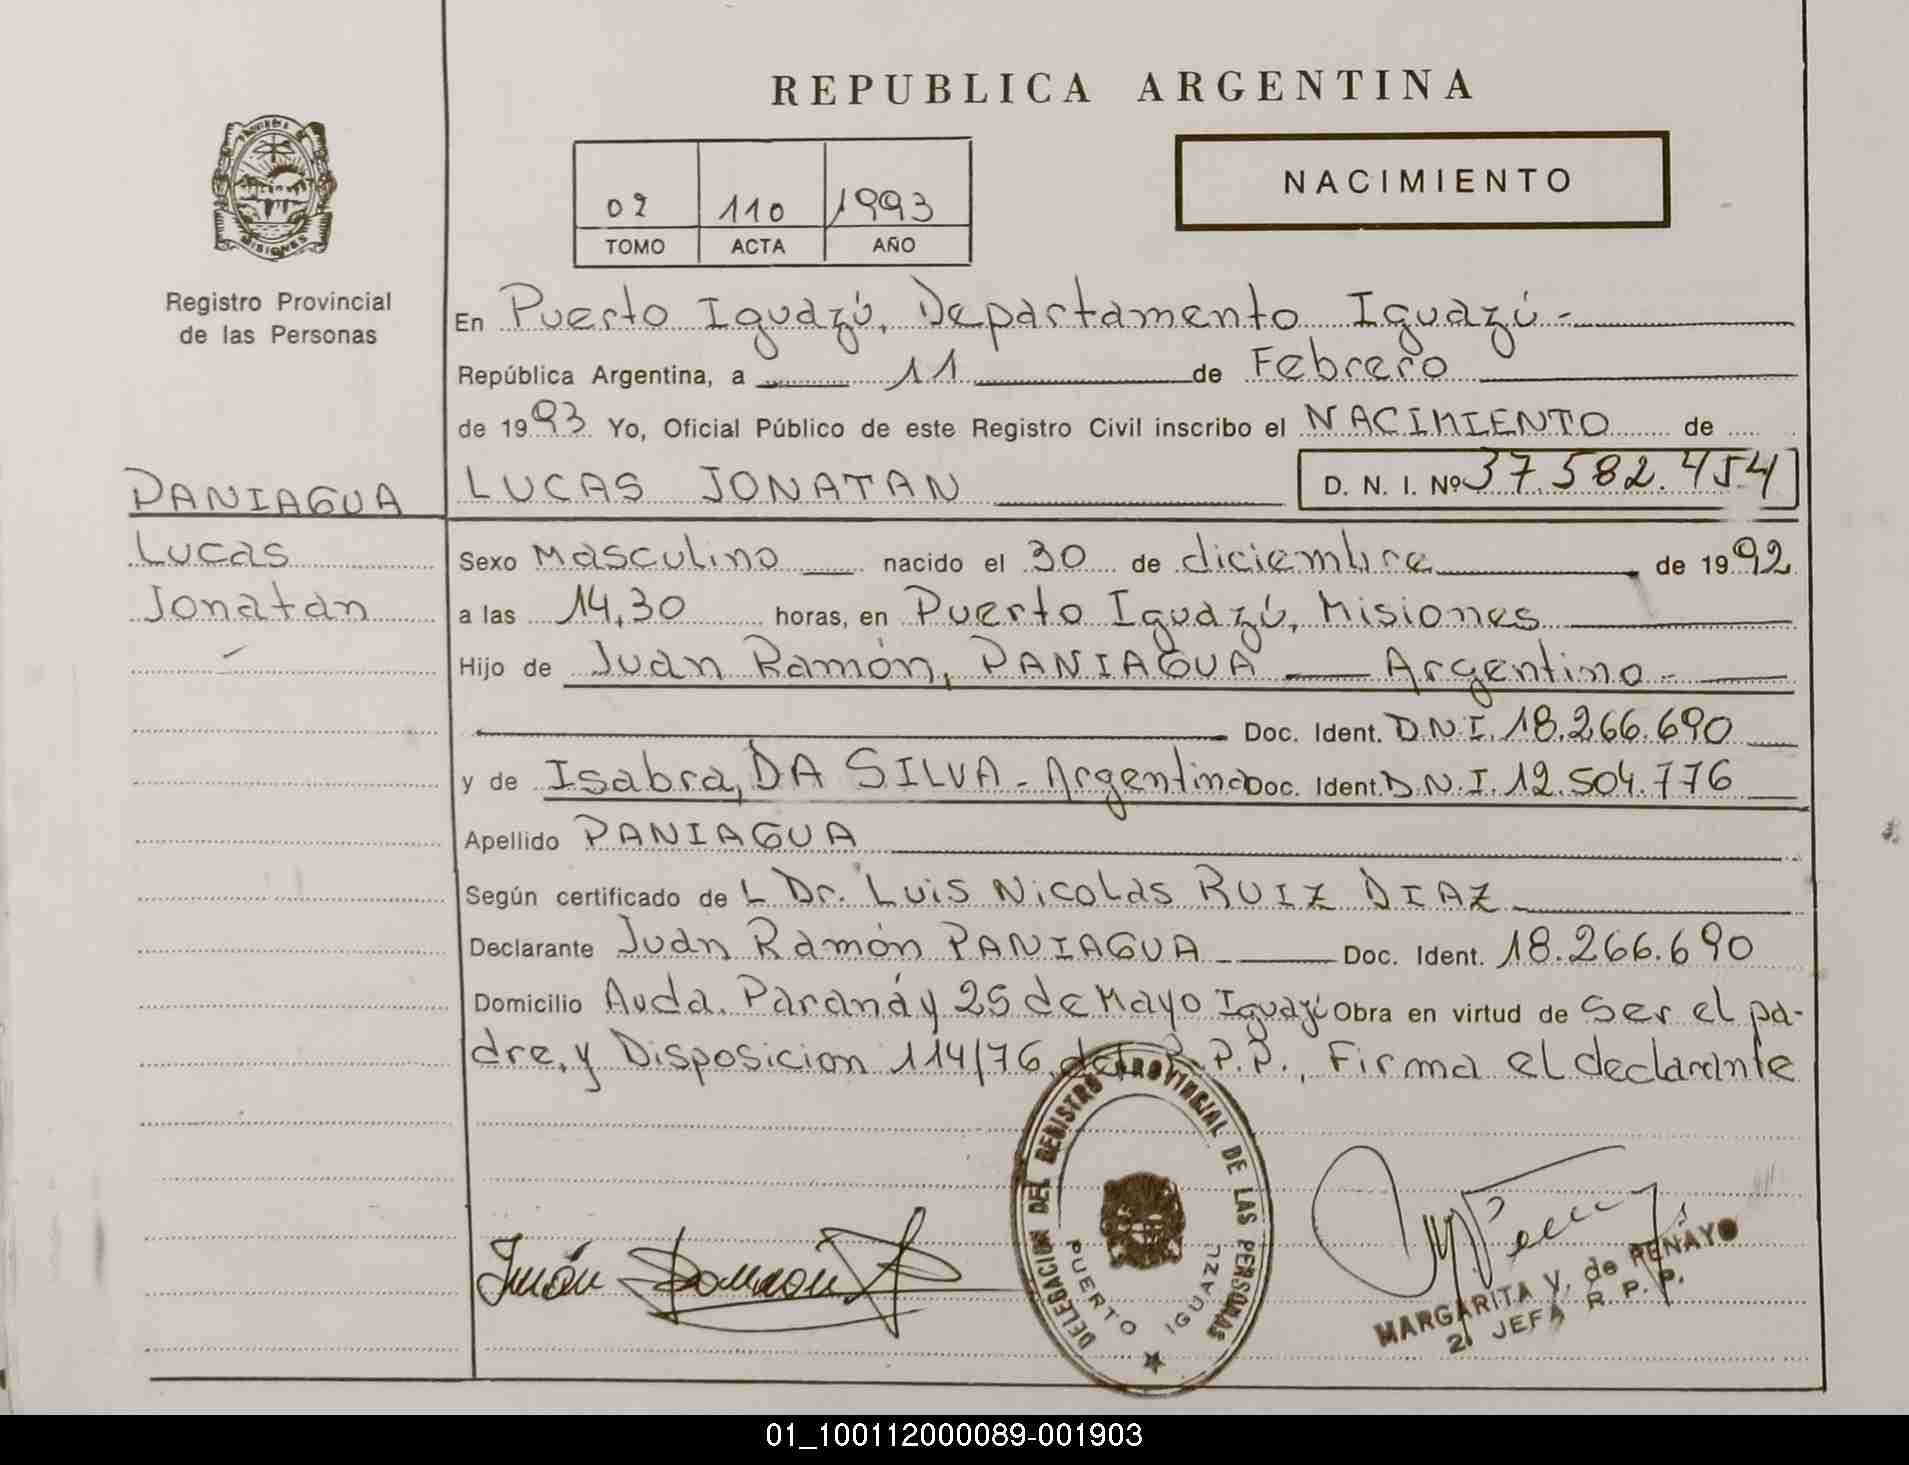 REPUBLICA ARGENTINA
NACIMIENTO
02 110 1993
TOMO ACTA AÑO
MISIONES
Registro Provincial
de las Personas
En Puerto Iguazú, Departamento Iguazú -
República Argentina, a 11 de Febrero
de 1993 Yo, Oficial Público de este Registro Civil inscribo el NACIMIENTO de
PANIAGUA LUCAS JONATAN D. N. I. Nº 37.582.454
Lucas Sexo Masculino nacido el 30 de diciembre de 1992
Jonatan a las 14,30 horas, en Puerto Iguazú, Misiones
Hijo de Juan Ramón, PANIAGUA — Argentino -
Doc. Ident. D.N.I. 18.266.690
y de Isabra, DA SILVA - Argentina Doc. Ident. D.N.I. 12.504.776
Apellido PANIAGUA
Según certificado de L Dr. Luis Nicolas RUIZ DIAZ
Declarante Juan Ramón PANIAGUA Doc. Ident. 18.266.690
Domicilio Avda. Paraná y 25 de Mayo Iguazú Obra en virtud de ser el pa-
dre, y Disposicion 114/76, del R.P.P., Firma el declarante
DELEGACION DEL REGISTRO PROVINCIAL DE LAS PERSONAS
PUERTO IGUAZU
MARGARITA Y. de PENAYO
2. JEFA R. P. P.
01_100112000089-001903